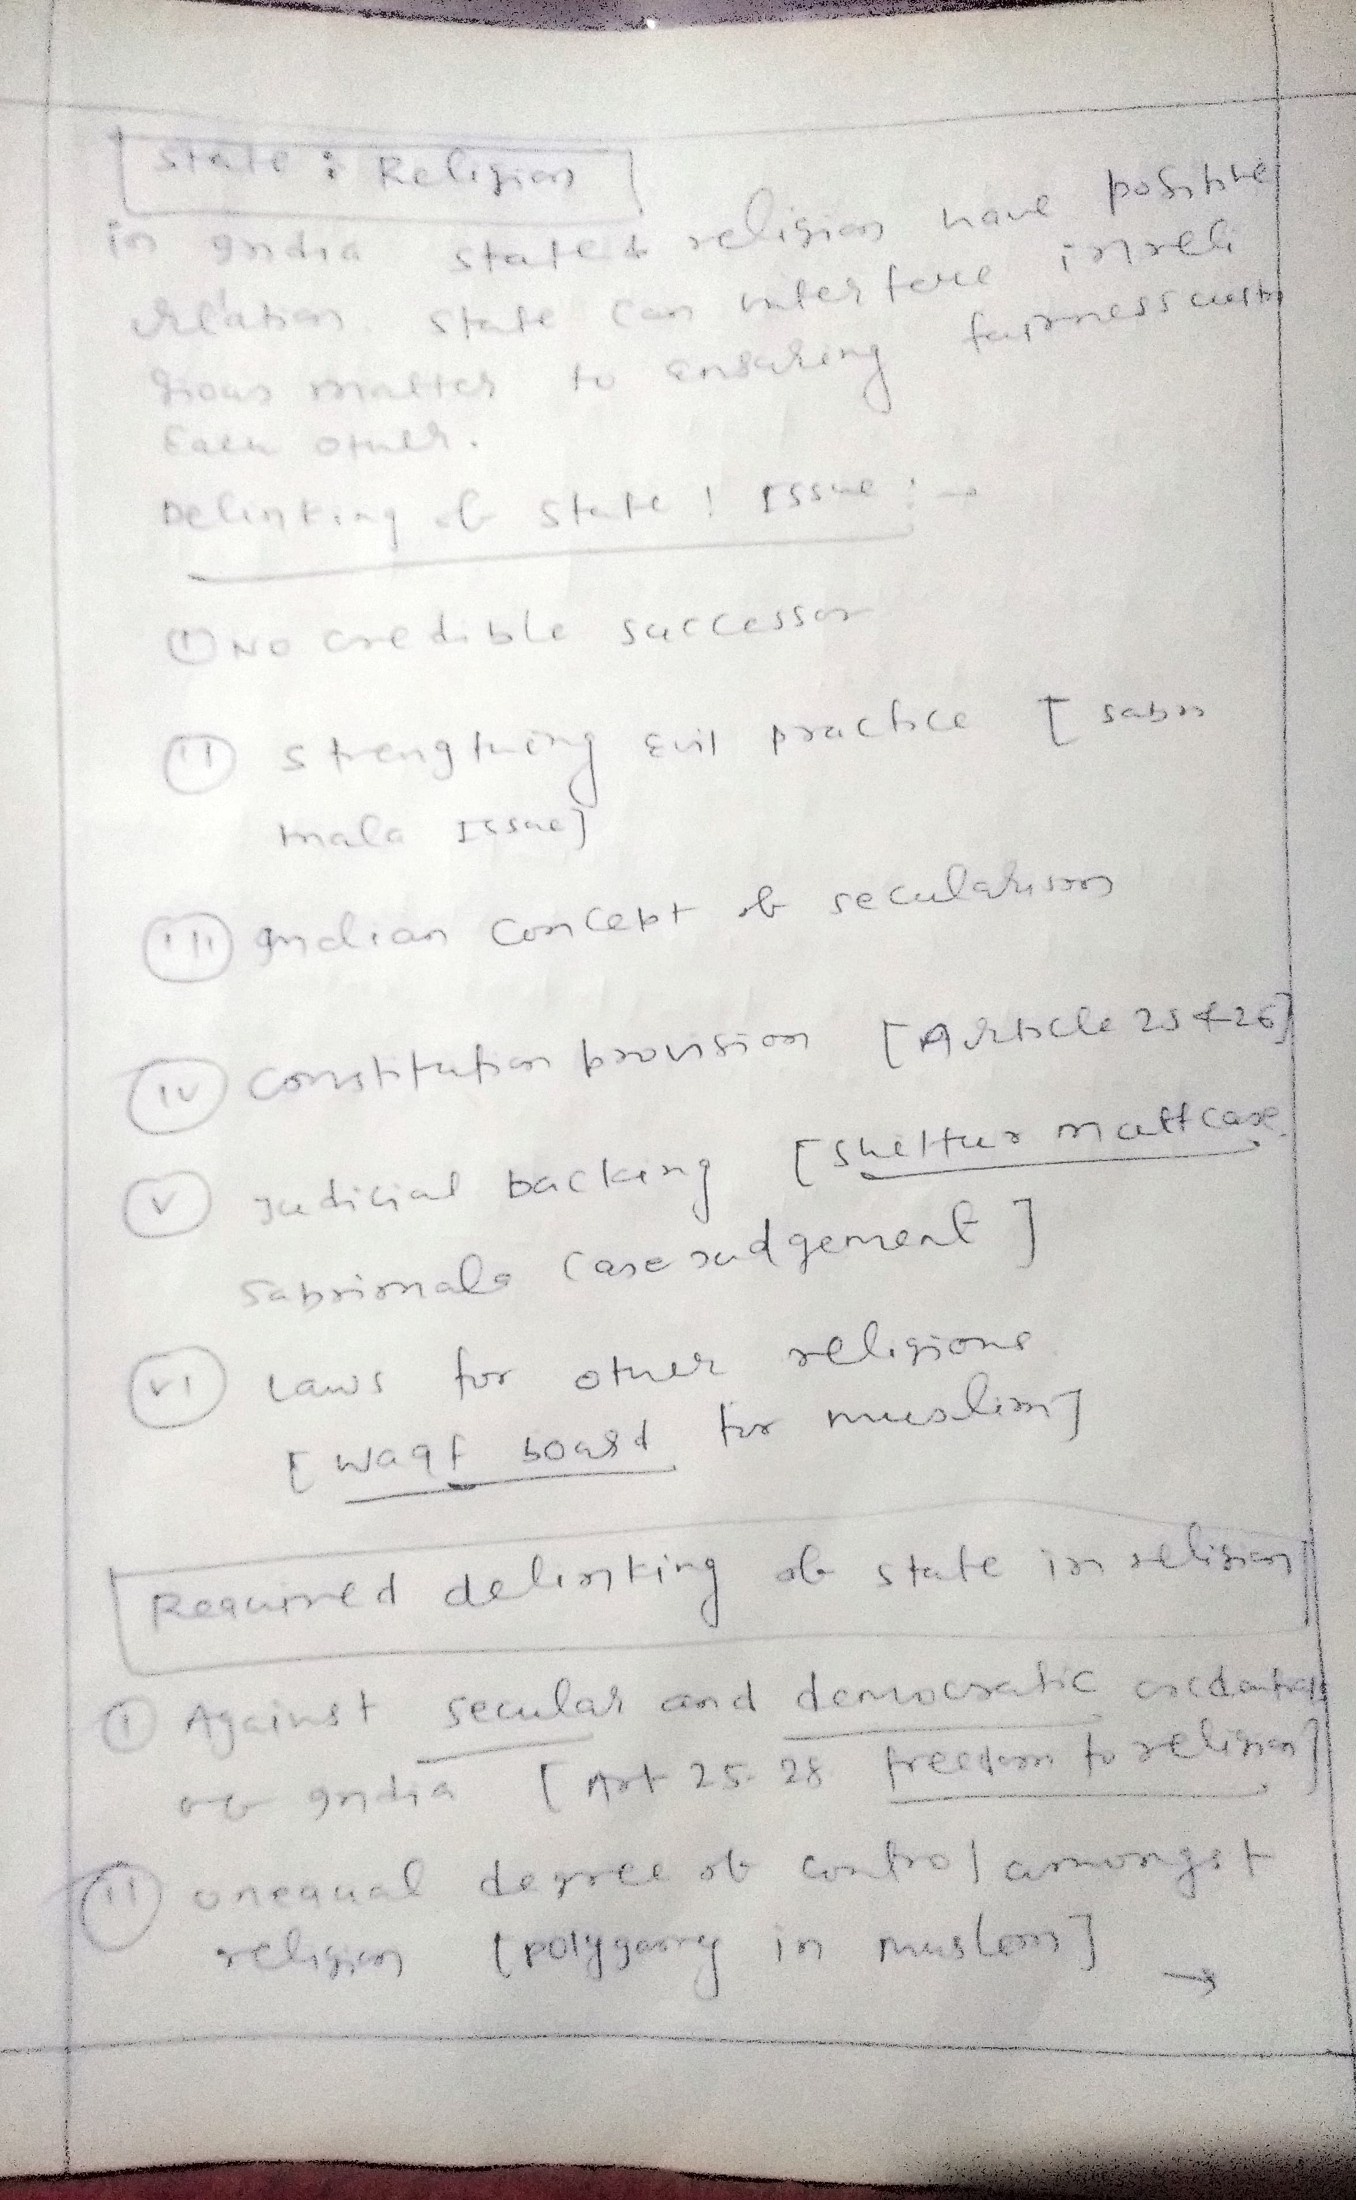 State : Religion
in India state & religion have positive
relation state can interfere in reli
gious matter to ensuring fairness
Each other.
Delinking of state : Issue : →
(i) NO credible successor
(ii) strengthing Evil practice [ sabri
mala Issue]
(iii) Indian concept of secularism
(iv) constitution provision [Article 25 & 26]
(v) Judicial backing [Shelthur matt case
Sabrimala case judgement ]
(vi) Laws for other religions
[ waqf board for muslim]
Required delinking of state in religion
(i) Against secular and democratic
of India [ Art 25-28 freedom to religion]
(ii) unequal degree of control amongst
religion [polygamy in muslem] →